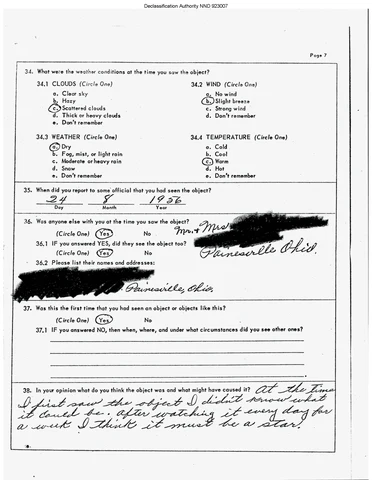 Declassification Authority NND 923007
Page 7
34. What were the weather conditions at the time you saw the object?
34.1 CLOUDS (Circle One)
a. Clear sky
b. Hazy
c. Scattered clouds
d. Thick or heavy clouds
e. Don't remember
34.2 WIND (Circle One)
a. No wind
b. Slight breeze
c. Strong wind
d. Don't remember
34.3 WEATHER (Circle One)
a. Dry
b. Fog, mist, or light rain
c. Moderate or heavy rain
d. Snow
e. Don't remember
34.4 TEMPERATURE (Circle One)
a. Cold
b. Cool
c. Warm
d. Hot
e. Don't remember
35. When did you report to some official that you had seen the object?
24 8 1956
Day Month Year
36. Was anyone else with you at the time you saw the object?
(Circle One) Yes No
Mr. & Mrs
Painesville Ohio.
36.1 IF you answered YES, did they see the object too?
(Circle One) Yes No
36.2 Please list their names and addresses:
Painesville, Ohio.
37. Was this the first time that you had seen an object or objects like this?
(Circle One) Yes No
37.1 IF you answered NO, then when, where, and under what circumstances did you see other ones?
38. In your opinion what do you think the object was and what might have caused it? At the time
I first saw the object I didn't know what
it could be. After watching it every day for
a week I think it must be a star.